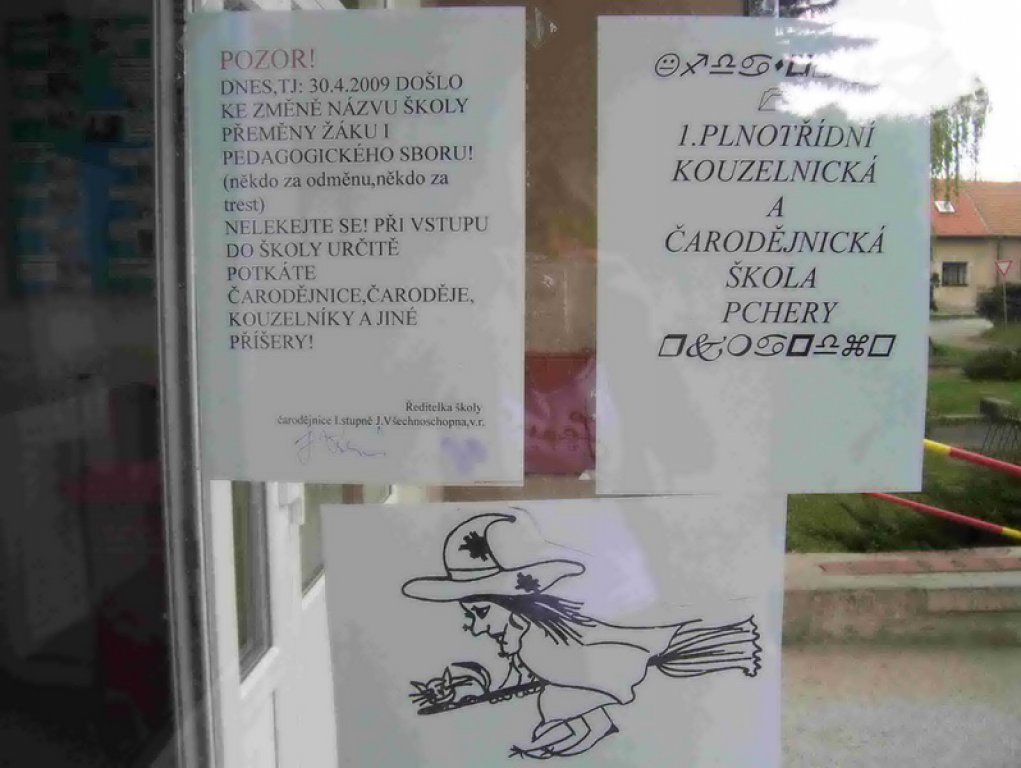 POZOR!
DNES,TJ: 30.4.2009 DOŠLO
KE ZMĚNĚ NÁZVU ŠKOLY
PŘEMĚNY ŽÁKU I
PEDAGOGICKÉHO SBORU!
(někdo za odměnu,někdo za
trest)
NELEKEJTE SE! PŘI VSTUPU
DO ŠKOLY URČITĚ
POTKÁTE
ČARODĚJNICE,ČARODĚJE,
KOUZELNÍKY A JINÉ
PŘÍŠERY!
Ředitelka školy
čarodějnice I.stupně J.Všechnoschopna,v.r.
1.PLNOTŘÍDNÍ
KOUZELNICKÁ
A
ČARODĚJNICKÁ
ŠKOLA
PCHERY